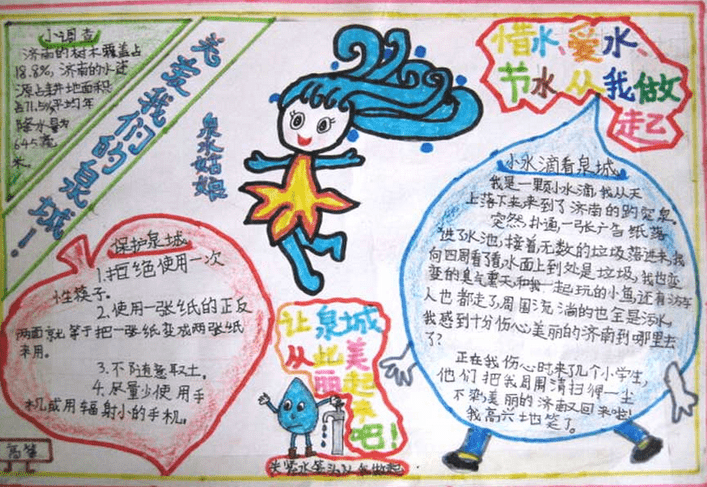 小调查
济南的树木覆盖占
18.8%,济南的水资
源占耕地面积
占71.5%平均年
降水量为
645毫
米。
关爱我们的泉城!
泉水姑娘
惜水、爱水、
节水从我做
起
保护泉城
1.拒绝使用一次
性筷子。
2.使用一张纸的正反
两面就等于把一张纸变成两张纸
来用。
3.不随意取土。
4.尽量少使用手
机或用辐射小的手机。
让泉城
从此美
丽起
来吧!
小水滴看泉城
我是一颗小水滴,我从天
上落下来来到了济南的趵突泉。
突然,扑通,一张广告纸落
进了水池,接着无数的垃圾落进来,我
向四周看了看水面上到处是垃圾,我也变
变的臭气熏天,和我一起玩的小鱼还有游客
人也都走了,周围流淌的也全是污水,
我感到十分伤心美丽的济南到哪里去
了?
正在我伤心时来了几个小学生,
他们把我周围清扫得一尘
不染,美丽的济南又回来啦!
我高兴地笑了。